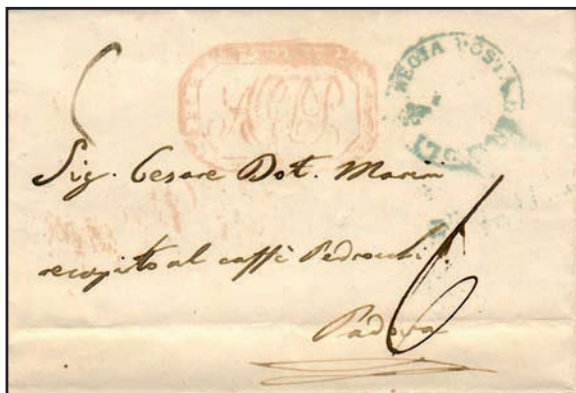 REGIA POSTA
Sig. Cesare Dot. Marini
recapito al caffè Pedrocchi
6
Padova